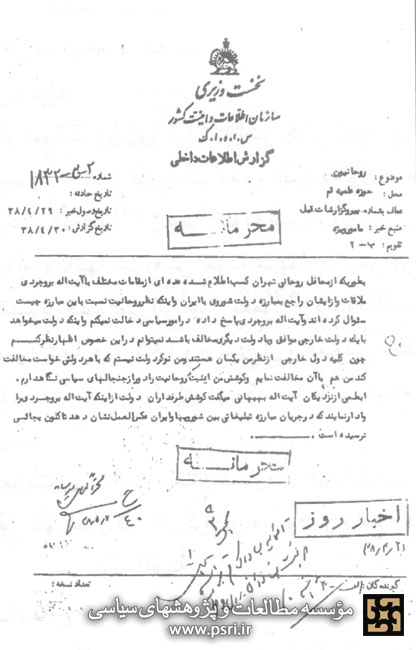 نخست وزیری
سازمان اطلاعات و امنیت کشور
س.ا.و.ا.ک
گزارش اطلاعات داخلی
موضوع : روحانیون
محل : حوزه علمیه قم
عطف بشماره : پیرو گزارشات قبل
منبع خبر : مامور ویژه
تقویم : ب-۲
شماره
تاریخ حادثه :
تاریخ وصول خبر : ۳۸/۴/۲۹
تاریخ گزارش : ۳۸/۴/۳۰
محرمانه
بطوریکه از محافل روحانی تهران کسب اطلاع شده عده ای از مقامات مختلف با آیت اله بروجردی
ملاقات و از ایشان راجع بمبارزه دولت شوروی با ایران و اینکه نظر روحانیت نسبت باین مبارزه چیست
سئوال کرده اند و آیت اله بروجردی پاسخ داده در امور سیاسی دخالت نمیکنم و اینکه دولت میخواهد
با یک دولت خارجی موافق و با دولت دیگری مخالف باشد نمیتوانم در این خصوص اظهار نظر کنم
چون کلیه دول خارجی از نظر من یکسان هستند و من نوکر دولت نیستم که با هر دولتی خواست مخالفت
کند من هم با آن مخالفت نمایم و کوشش من اینست روحانیت را دور از جنجالهای سیاسی نگاهدارم .
ایطمی از نزدیکان آیت اله بهبهانی میگفت کوشش طرفداران دولت از اینکه آیت اله بروجردی را
وادار نمایند که در جریان مبارزه تبلیغاتی بین شوروی و ایران عکس العمل نشان دهد تاکنون بجائی
نرسیده است .
محرمانه
اخبار روز
گیرندگان :
تعداد نسخه :
مؤسسه مطالعات و پژوهشهای سیاسی
www.psri.ir